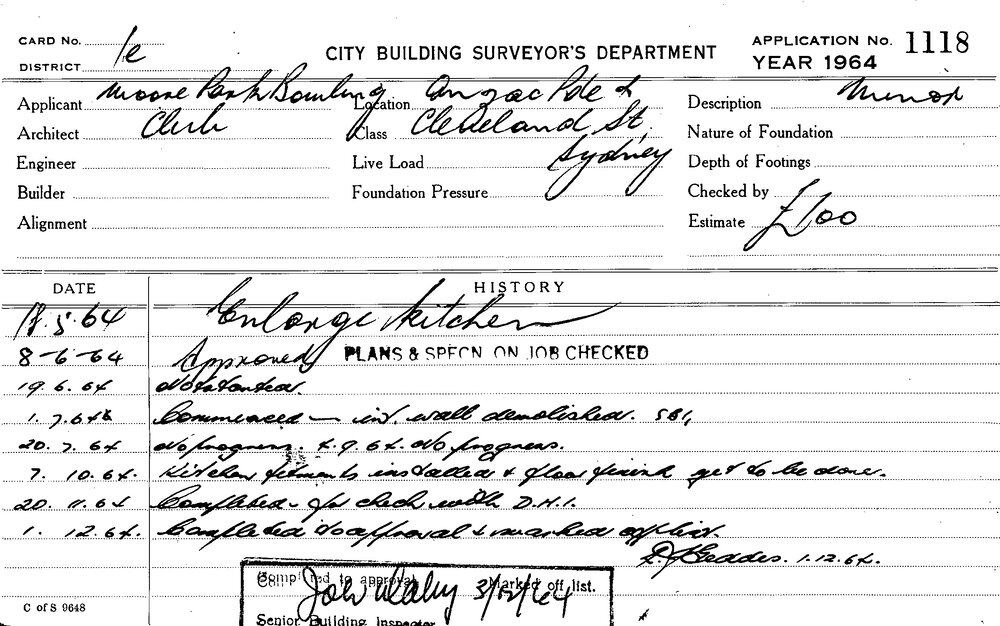 CARD No.
DISTRICT 1e
CITY BUILDING SURVEYOR'S DEPARTMENT
APPLICATION No. 1118
YEAR 1964
Applicant Moore Park Bowling
Location Anzac Pde &
Description Minor
Architect Club
Class Cleveland St,
Nature of Foundation
Engineer
Live Load Sydney
Depth of Footings
Builder
Foundation Pressure
Checked by
Alignment
Estimate £100
DATE HISTORY
5.64 Enlarge kitchen
8-6-64 Approved PLANS & SPECN ON JOB CHECKED
19.6.64 Not started.
1.7.64 Commenced - int. wall demolished.
20.7.64 No progress. 4.9.64. No progress.
7.10.64. Kitchen fitments installed & floor finish yet to be done.
20.11.64 Completed - for check with D.H.I.
1.12.64. Completed to approval & marked off list.
Geddes. 1.12.64.
Completed to approval Marked off list.
3/12/64
C of S 9648
Senior Building Inspector